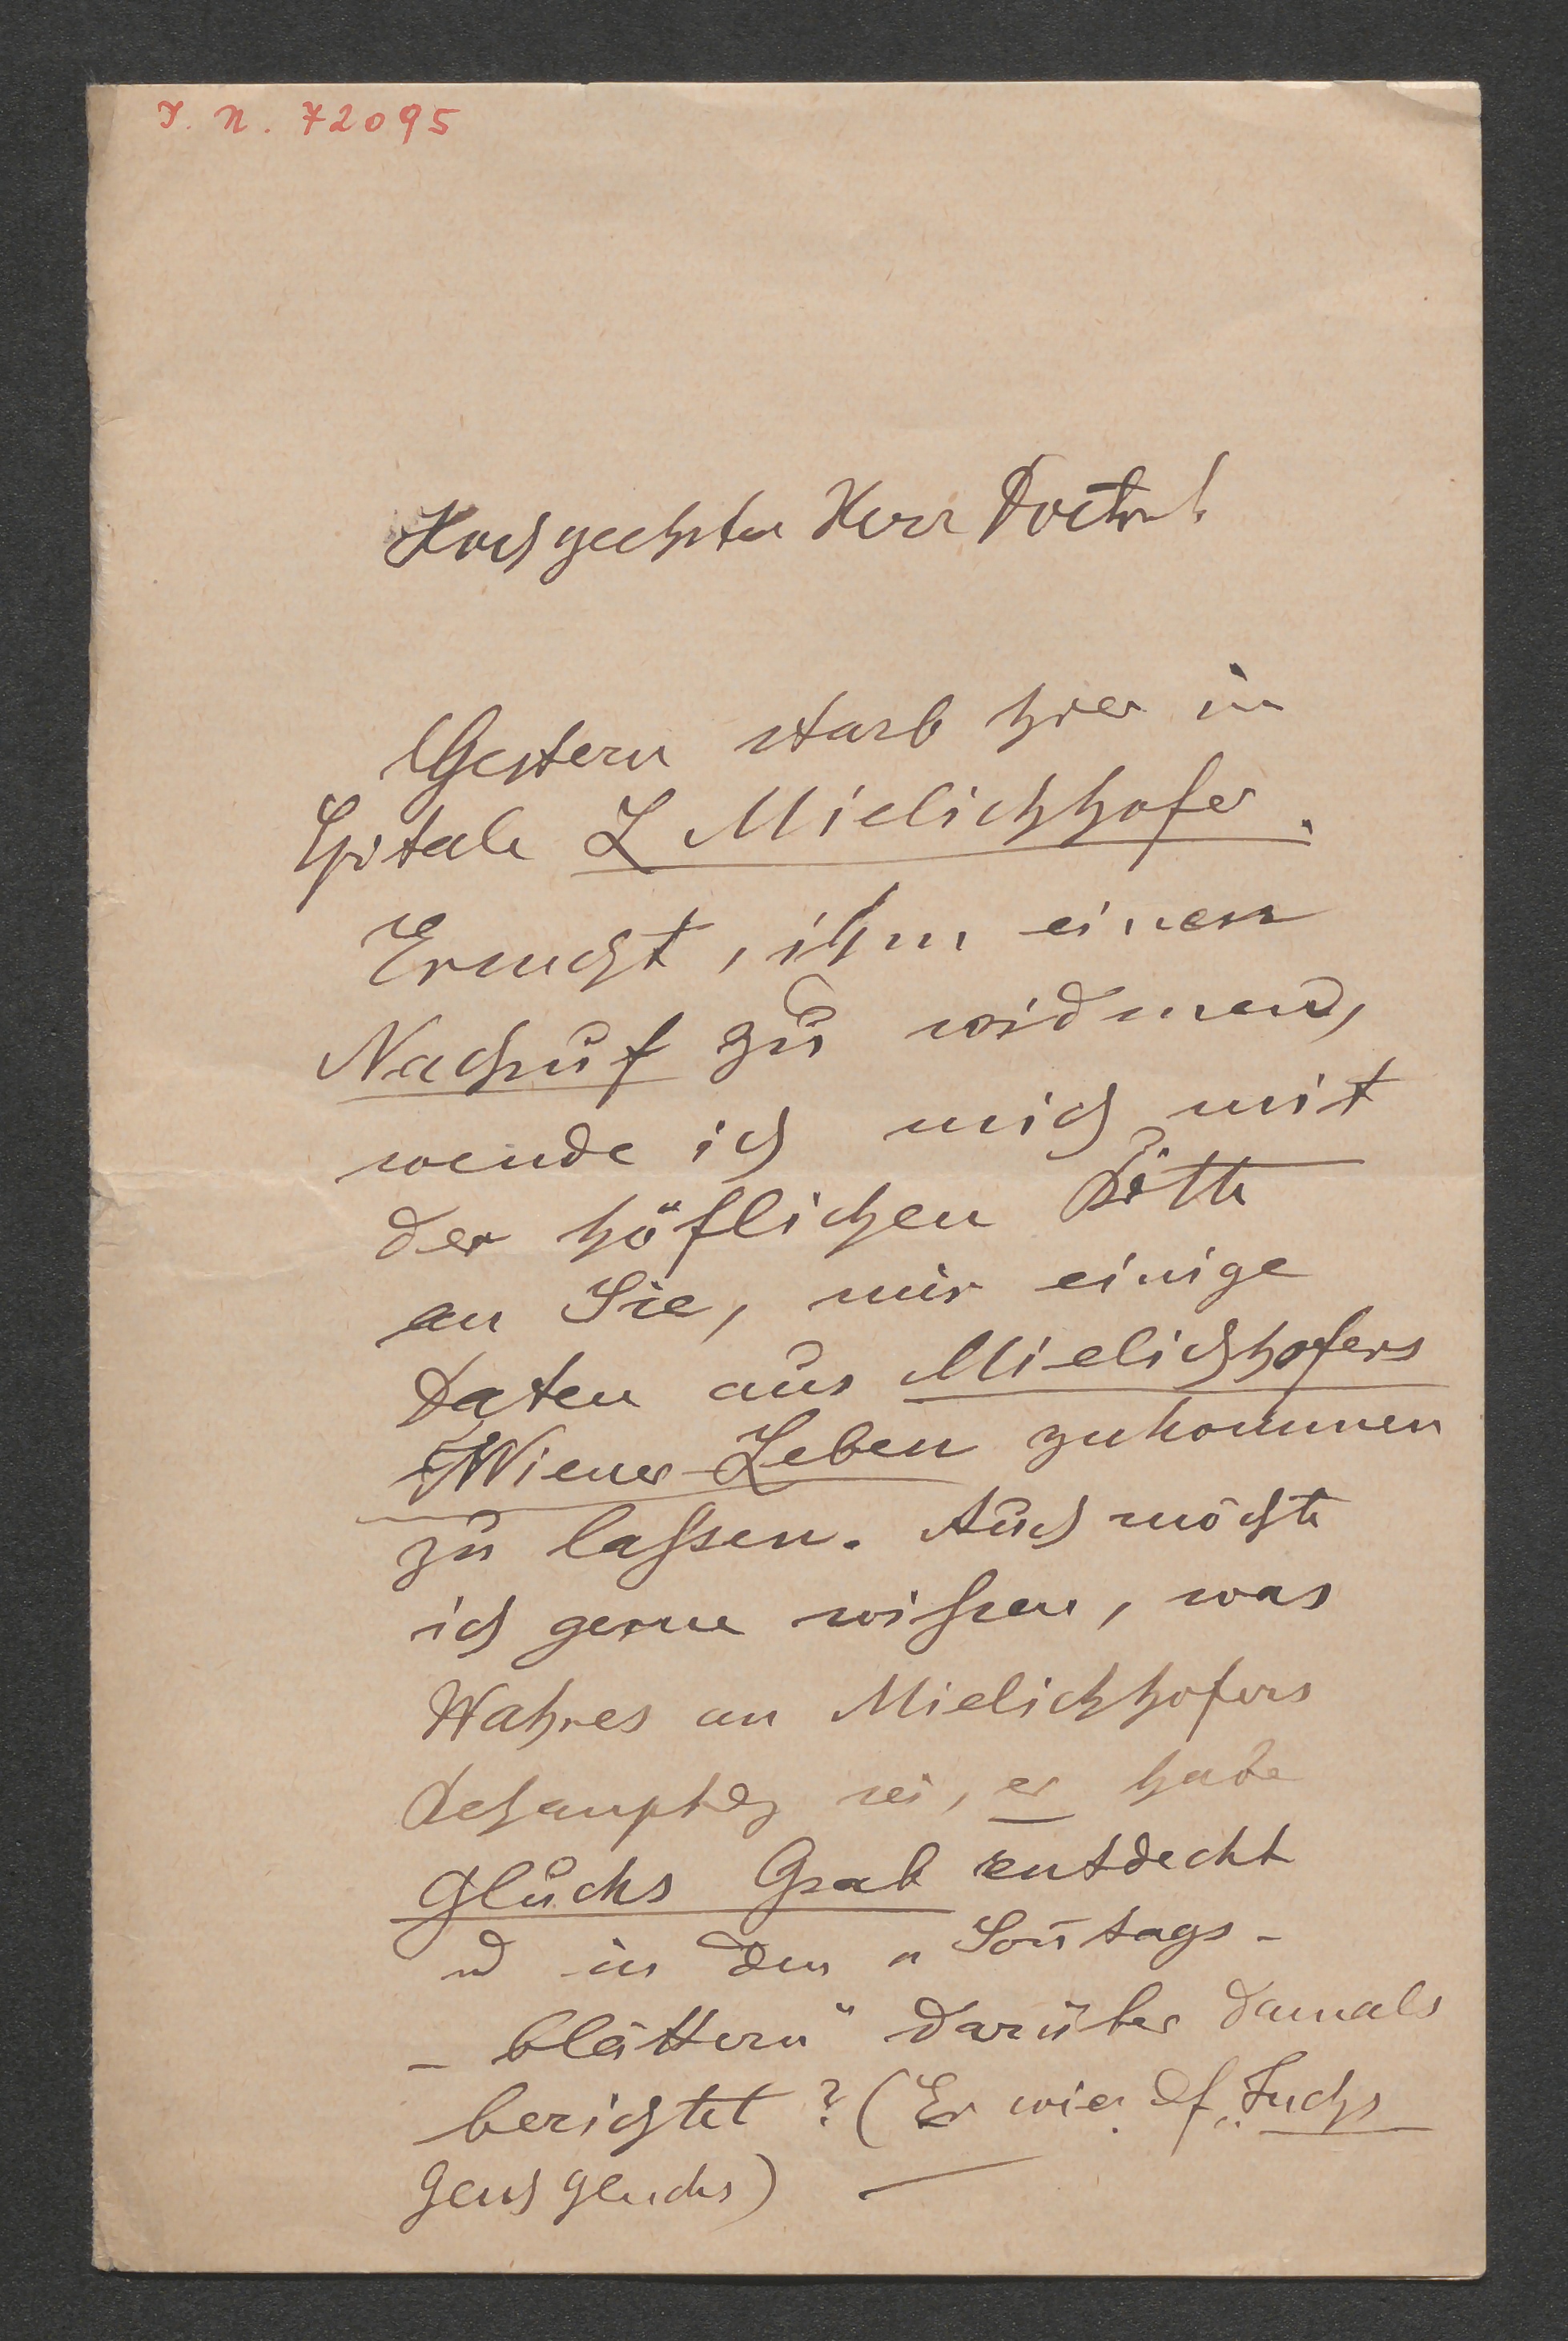 I. N. 72095
Hochgeehrter Herr Doctor!
Gestern starb hier im
Spitale L Mielichhofer.
Ersucht, ihm einen
Nachruf zu widmen,
wende ich mich mit
der höflichen Bitte
an Sie, mir einige
Daten aus Mielichhofers
Wiener-Leben zukommen
zu laßen. Auch möchte
ich gerne wißen, was
Wahres an Mielichhofers
Behauptg sei, er habe
Glucks Grab entdeckt
u in den „Sontags-
-blättern" darüber damals
berichtet? (Er wie Fuchs
Glucks)